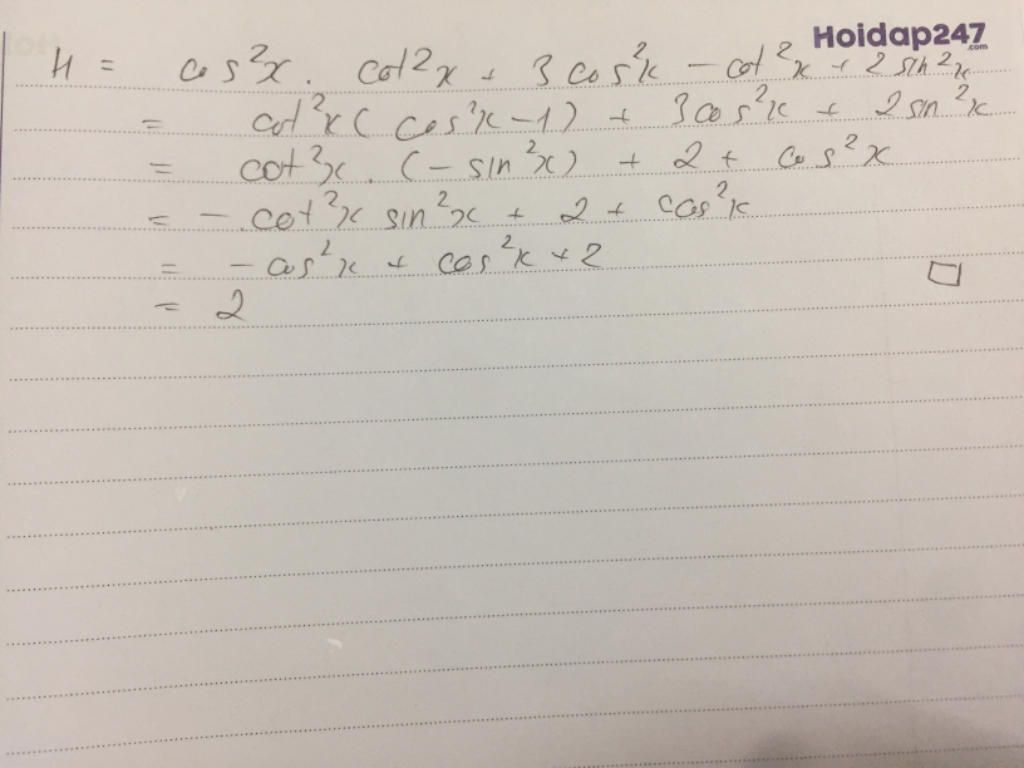 Hoidap247
.com
H = cos²x . cot²x + 3cos²x - cot²x + 2sin²x
= cot²x (cos²x - 1) + 3cos²x + 2sin²x
= cot²x . (- sin²x) + 2 + cos²x
= - cot²x sin²x + 2 + cos²x
= - cos²x + cos²x + 2
= 2